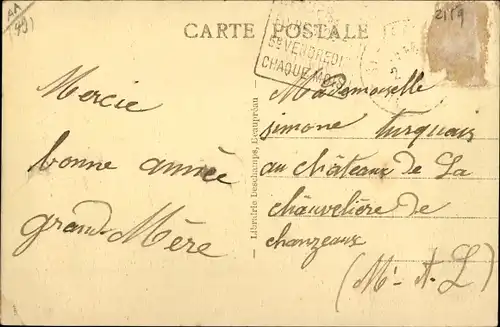 AA
1491
CARTE POSTALE
2119
3e VENDREDI
CHAQUE MOIS
Mercie
bonne année
grand Mère
Librairie Deschamps, Beaupréau
Mademoiselle
simone turquais
au châteaux de La
châuvelière de
chanzeaux
(M-A-L)